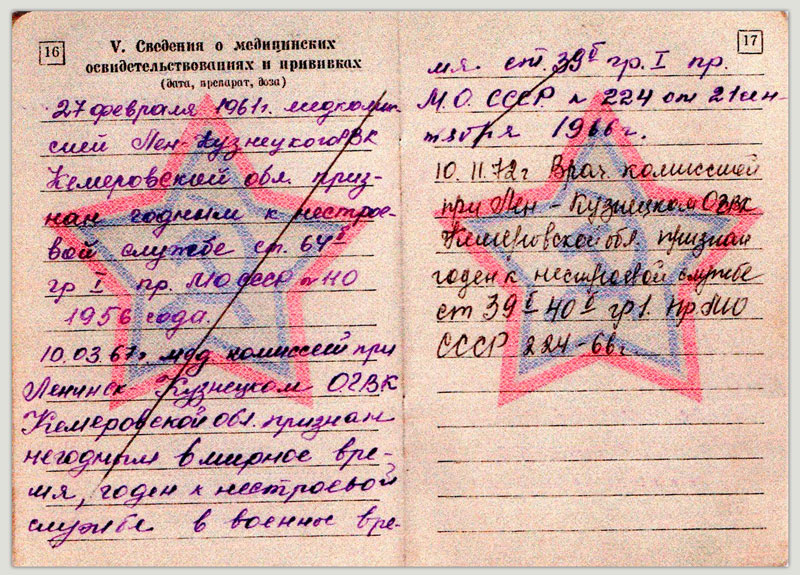 16
V. Сведения о медицинских
освидетельствованиях и прививках
(дата, препарат, доза)
27 февраля 1961г. медкомис-
сией Лен-Кузнецкого РВК
Кемеровской обл. приз-
нан годным к нестрое-
вой службе ст. 64б
гр I пр. МО СССР № 110
1956 года.
10.03.67г мед комиссией при
Ленинск Кузнецком ОГВК
Кемеровской обл. признан
негодным в мирное вре-
мя, годен к нестроевой
службе в военное вре-
17
мя. ст. 39б гр. I пр.
М.О. СССР № 224 от 21 сен-
тября 1966 г.
10. 11. 72 г Врач. комиссией
при Лен-Кузнецком ОГВК
Кемеровской обл. признан
годен к нестроевой службе
ст 39б 40б гр 1. Пр. МО
СССР 224-66г